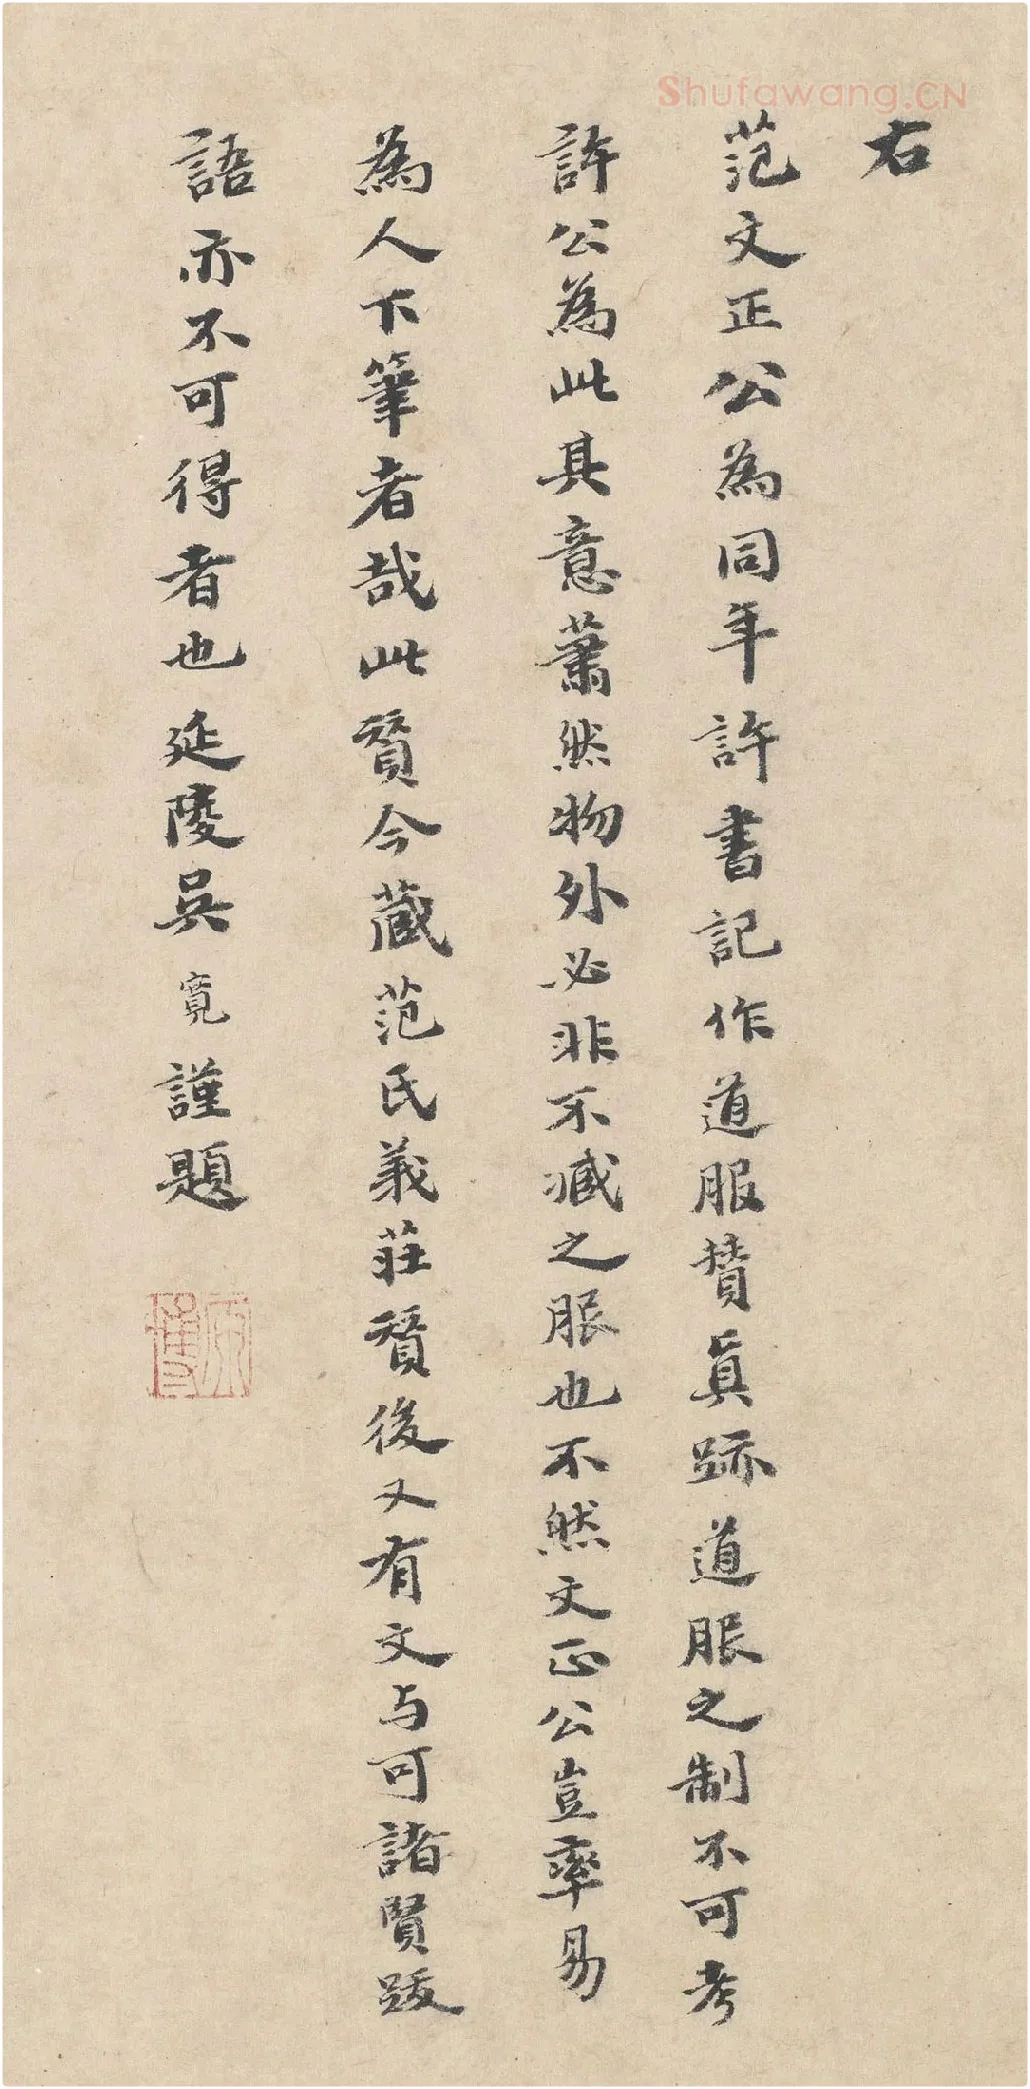 Shufawang.CN
右
范文正公為同年許書記作道服賛真跡道服之制不可考
許公為此其意蕭然物外必非不臧之服也不然文正公豈率易
為人下筆者哉此賛今藏范氏義莊賛後又有文与可諸賢跋
語亦不可得者也延陵吳寬謹題
原博